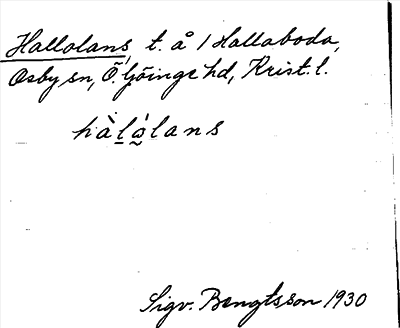 Hallolans t. å / Hallaboda,
Osby sn, Ö. Göinge hd, Krist. l.
hàlálans
Sigv. Bengtsson 1930